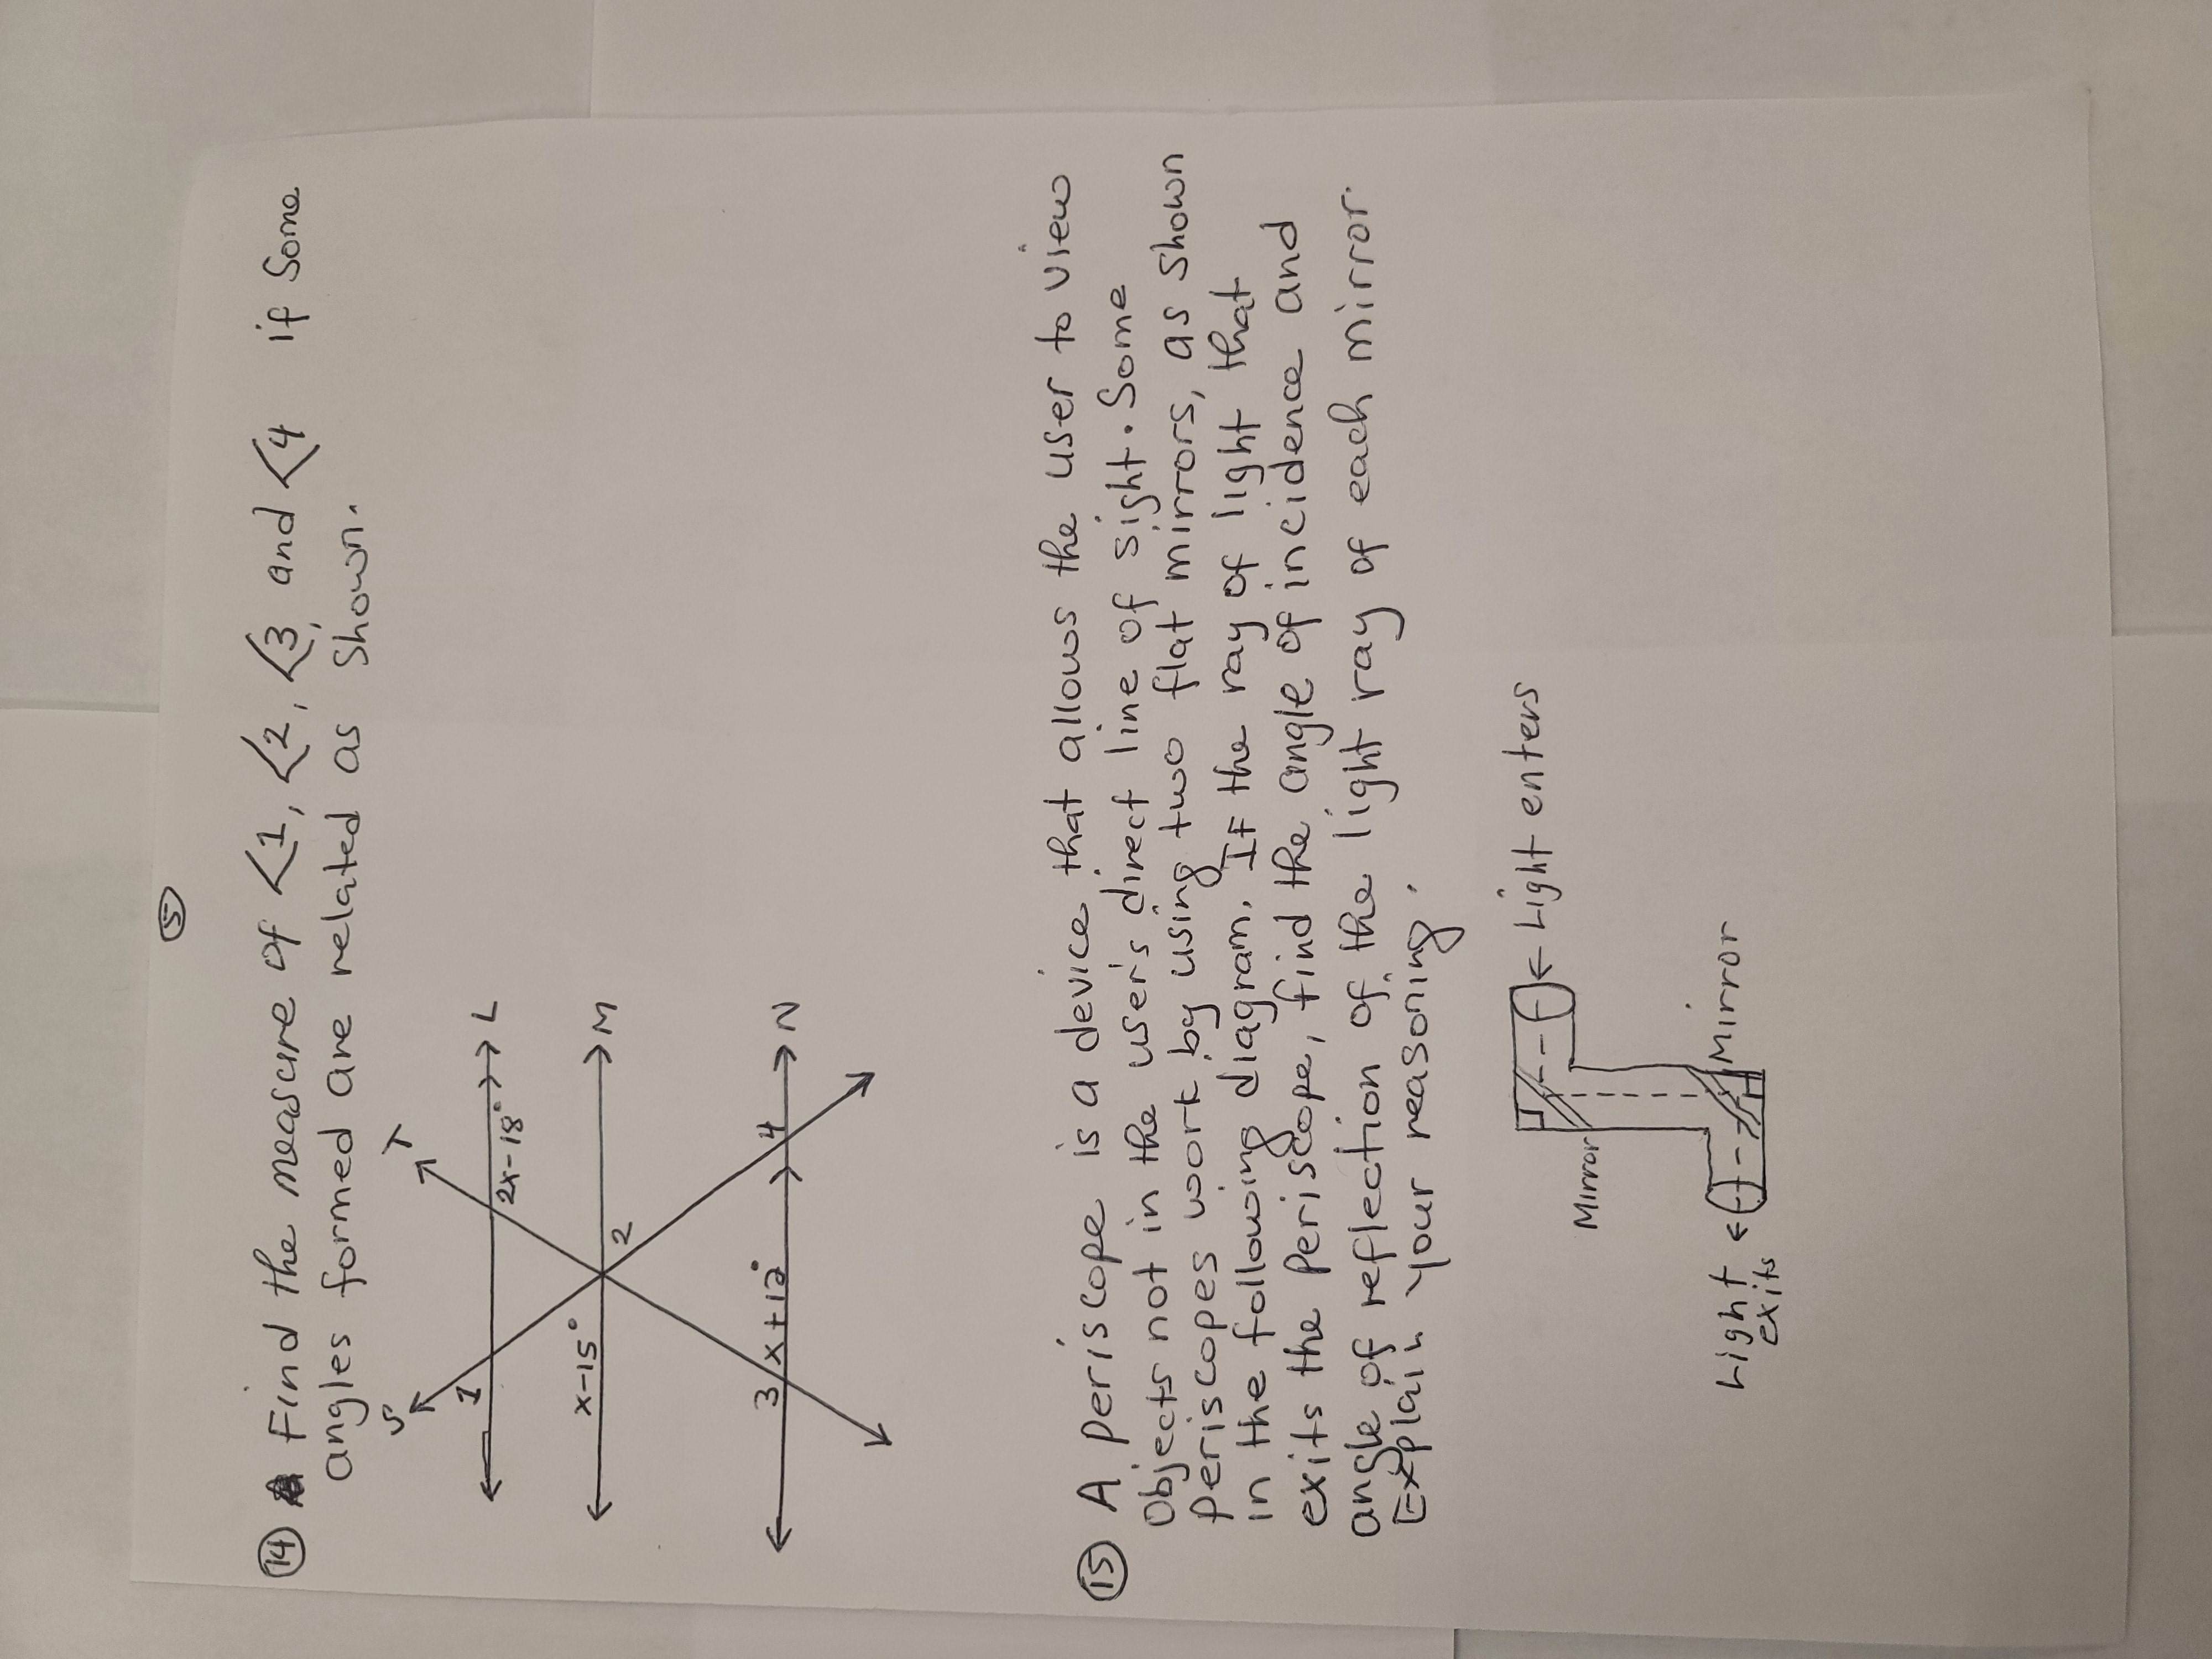 5
14 Find the measure of <1, <2, <3, and <4 if Some
angles formed are related as Shown.
S T
1
L
2x-18°
x-15°
M
2
3 x+12° 4
N
15 A periscope is a device that allows the user to view
Objects not in the user's direct line of sight. Some
periscopes work by using two flat mirrors, as shown
in the following diagram. If the ray of light that
exits the Periscope, find the angle of incidence and
angle of reflection of the light ray of each mirror.
Explain your reasoning.
← Light enters
Mirror
Mirror
Light ←
exits